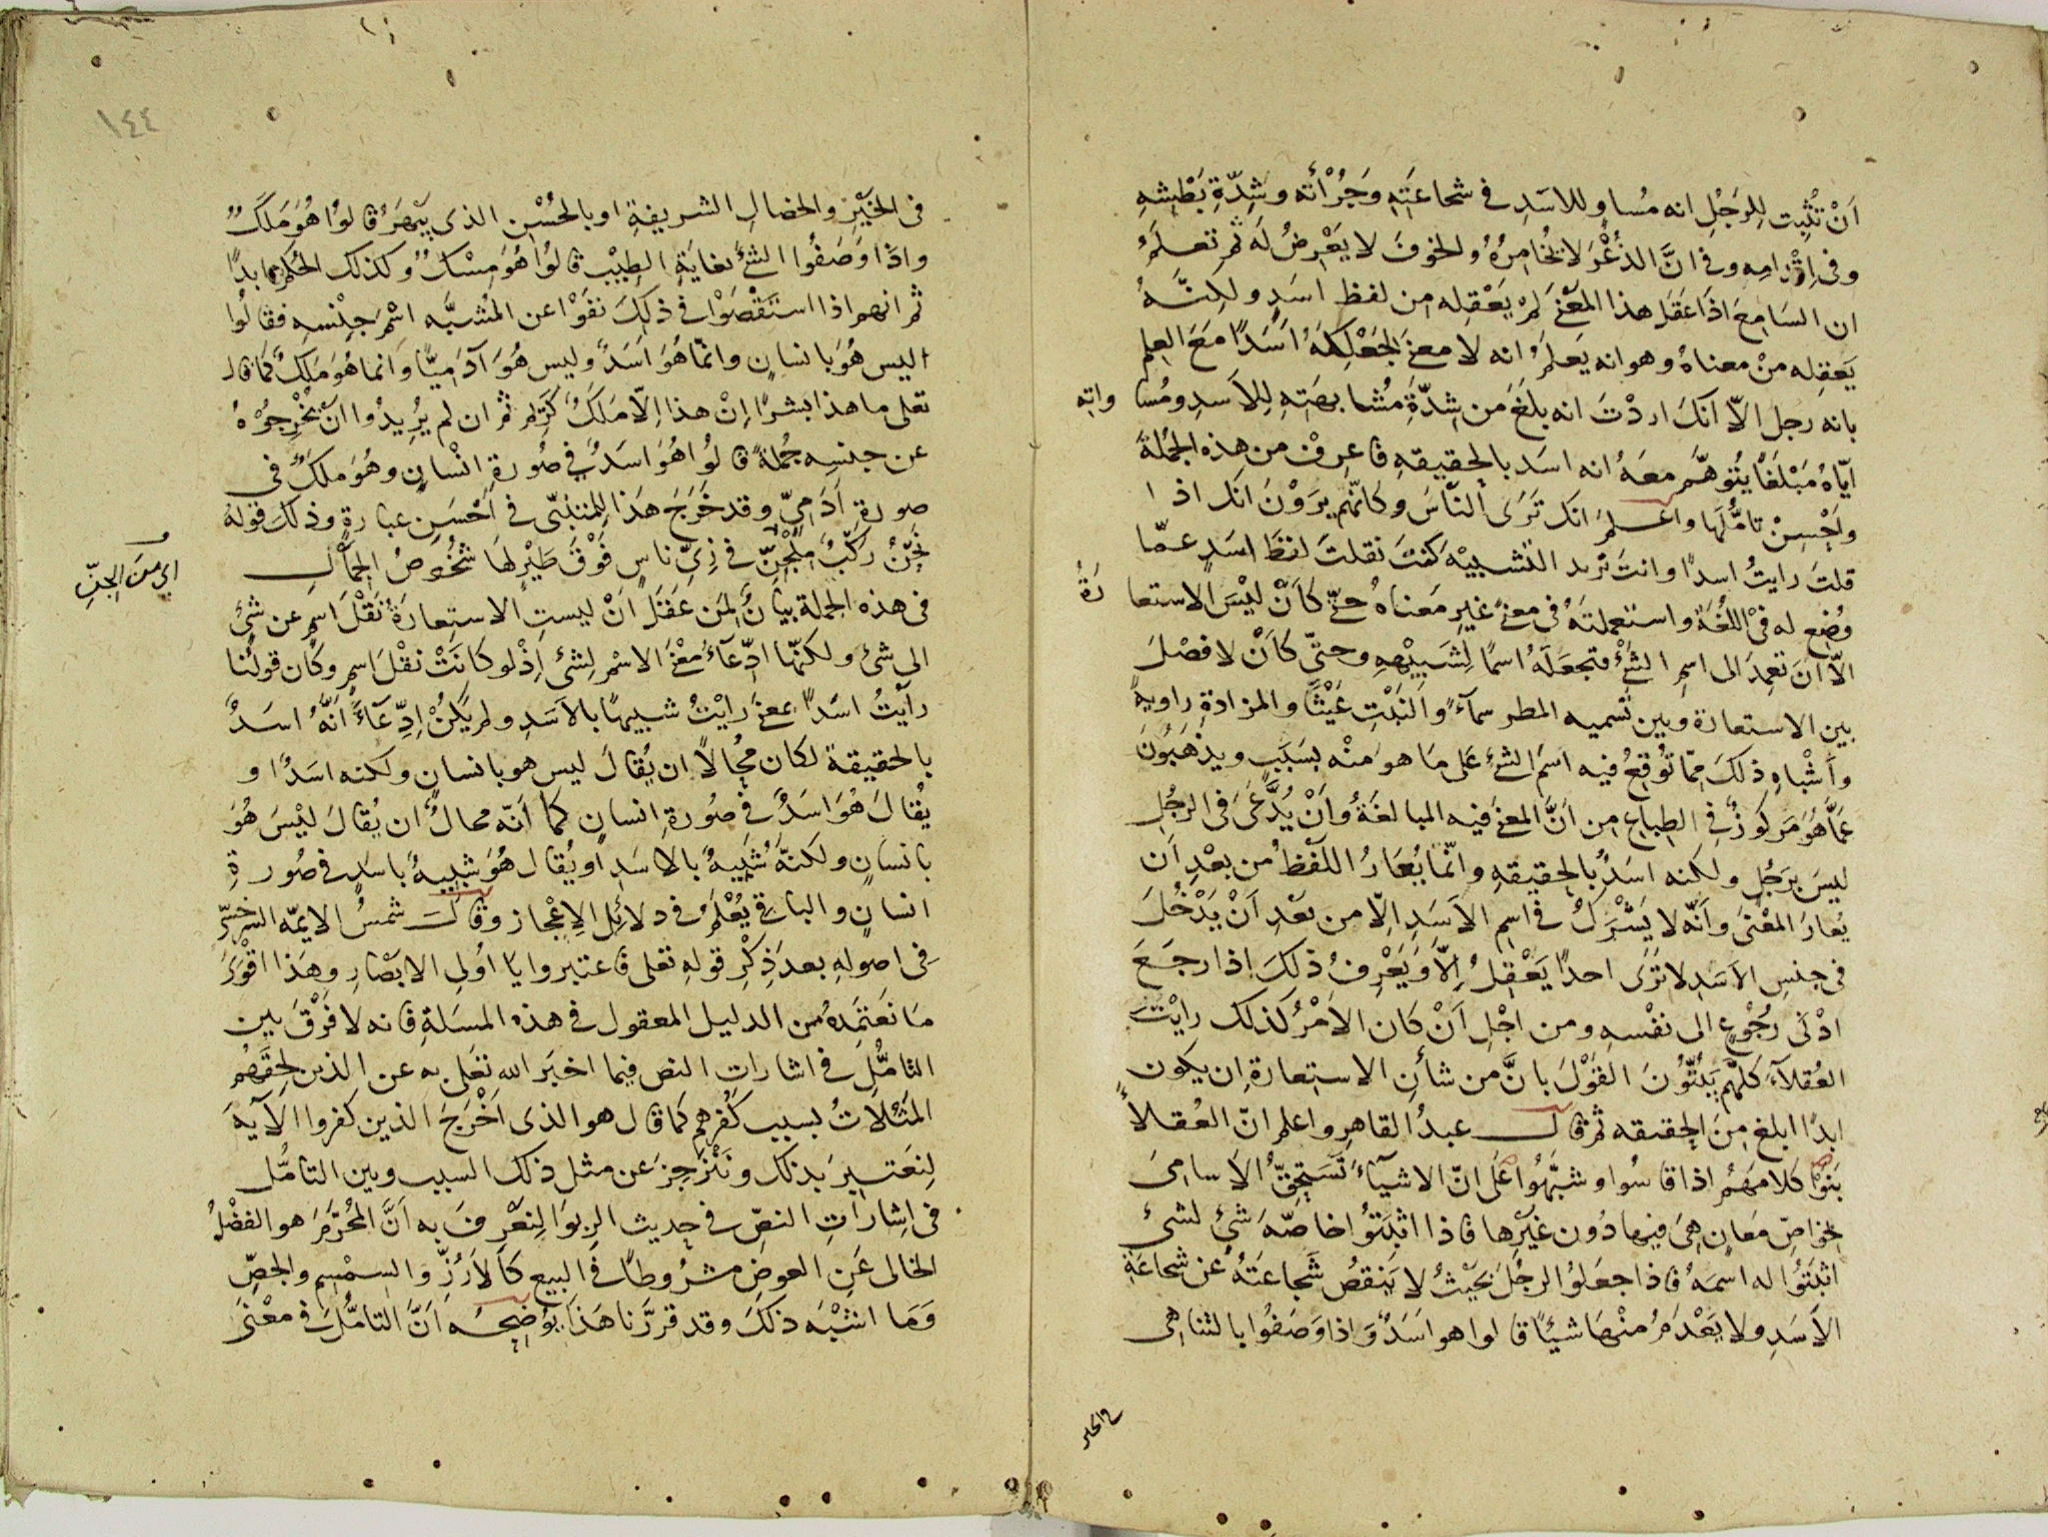 اَنْ تُثْبِت لِلرَجُلِ انه مُساوٍ للاسَدِ فى شجاعَتِهِ وجَرْأته وشِدّةِ بَطْشِهِ
وفى اِقْدَامِه وفى انَّ الذُعْرَ لا يُخَامِرُهُ والخوفَ لا يَعْرِضُ لَه ثم تعلَمُ
ان السَامِعَ اذَا عَقَل هذا المعْنَى لم يَعْقِله من لفظِ اسَدٍ ولكنَّهُ
يَعقِله مِنْ معناهُ وهو انه يَعلَمُ انه لا معنى لجَعْلِكَهُ اَسَدًا معَ العِلم
بانه رجل الّا انكَ اردْتَ انه بلَغَ من شِدّةِ مُشابهَتِهِ لِلاَسدِ ومُسا واته
ايّاهُ مَبْلَغًا يُتوهَّم معَهُ انه اسَد بالحقيقهِ فاعرفْ من هذه الجُملةَ
واَحْسِنْ تامُّلَها واعلمْ انك تَرَى الناسَ وكانّهم يرَوْنَ انك اذا
قلتَ رايتُ اسدًا وانتَ تريد التشبيْهَ كنتَ نقلتَ لفظَ اسَدٍ عمّا
وُضِع له فى اللُغَة واستعملتَهُ فى معنًى غيرِ مَعناهُ حتى كاَنْ ليْسَ الاستعا رَةُ
الّا انَ تعمِدَ الى اسمِ الشئْ فتجعَلَهُ اسمًا لِشَبِيْهِهِ وحتّى كاَنْ لا فصْلَ
بين الاستعارة وبين تَسميه المطر سمآءً والنَبْتِ غَيْثًا والمزادةِ راويةً
واَشْباهِ ذلكَ ممّا تُوقِعُ فيه اسمَ الشئ عَلى مَا هوَ منْه بسَبَبٍ ويذهَبُونَ
عَمّا هُوَ مَركوزٌ فى الطِباعِ من اَنَّ المعنى فيه المبالغَةُ واَنْ يُدَّعَى فى الرجُلِ
ليسَ برَجُلٍ ولكنه اسَدٌ بالحقيقهِ وانّما يُعَارُ اللَفظُ من بعْدِ اَن
يُعارَ المعْنَى واَنّه لا يَشْرَكُ فى اسمِ الاَسَدِ الّا من بعْدِ اَنْ يَدْخُلَ
فى جنسِ الاسَدِ لا ترَى احدًا يَعْقِلُ اِلّا وَيَعْرِفُ ذلكَ اذا رجَعَ
ادْنَى رُجُوْعٍ الى نفْسهِ ومن اجْلِ اَنْ كان الاَمْرُ كذلك رايْتَ
العُقلاَءَ كلّهُم يُثبتُونَ القوْلَ بانَّ من شأنِ الاستعارةِ ان يكون
ابدًا ابلغ مِنَ الحقيقه ثم قال عبدُ القاهرِ واعلم انّ العُقلاءَ
بَنَوْا كلامَهُم اذا قاسُوا وشبَّهُوا عَلى انّ الاشيآءَ تَسْتَحِقُّ الاَسامىَ
لخواصِّ مَعانٍ هىَ فيها دُون غيْرِها فاذا اثبَتُوْا خاصّهَ شئٍ لشئٍ
اثبَتُوْا له اسمَهُ فاذا جعَلوُا الرجُلَ بحَيْثُ لا يَنقصُ شَجاعَتهُ عن شجاعَةِ
الاَسَدِ ولا يَعْدَمُ منْها شيئًا قالوا هو اسَدٌ وَاذا وَصَفُوا بالتناهى
فى الخيْرِ والخصالِ الشريفةِ او بالحُسْنِ الذى يَبْهَرُ قالوُا هُوَ مَلَكٌ
واذا وَصَفُوا الشئَ بغايَةِ الطِيْبِ قالُوا هُوَ مِسْكٌ وكذلك الحُكم ابدًا
ثم انهم اذا استَقْصَوْا فى ذلِكَ نفَوْا عن المُشبَّه اسْمَ جِنْسِهِ فقالُوا
ليس هُوَ بانسانٍ وانّما هُوَ اَسَدٌ وليس هُوَ آدَمِيًّا وَانما هُوَ مَلكٌ كمَا قال
تعلى ما هذا بشرًا اِنْ هذا الّا مَلَكٌ كَرِيم ثم ان لم يُرِيدُوا اَنْ يُخْرِجُوْهُ
عن جِنسِه جُملةً قالُوا هُوَ اسَدٌ فى صُورةِ انْسانٍ وهُوَ ملَكٌ فى
صورةِ آدَمِىّ وقد خَرَجَ هَذا للِمتنبّى فى اَحْسَنِ عبارةٍ وذلكَ قولهُ
نَحْنُ رَكْبٌ مِلْجِنِّ فى زِىِّ ناسٍ فَوْقَ طَيْرٍ لهَا شُخُوصُ الجِمَالِ
اى مِنَ الجِنِّ
فى هذه الجملة بيَانٌ لِمَن عَقَلَ اَنْ ليستِ الاستِعارَةُ نَقْلَ اسمٍ عن شئٍ
الى شئٍ ولكنّها ادّعآءُ معْنَى الاسْمِ لِشئٍ اِذْ لو كانَتْ نقْلَ اسمٍ وكان قولُنا
رأَيتُ اسَدًا بمعنى رايْتُ شبيهًا بالاَسَدِ ولم يَكُنْ ادِّعآءً اَنّهُ اسَدٌ
بالحقيقة لكان مُحَالًا ان يُقالَ ليس هو بانسانٍ ولكنه اسَدٌ او
يُقالَ هُوَ اسَدٌ فى صُورةِ انسانٍ كما اَنّه محالٌ ان يُقالَ ليْسَ هُوَ
بانسَانٍ ولكنّهُ شَبِيهٌ بالاسَدِ او يُقال هُوَ شَبِيهٌ باسَدٍ فى صُورةِ
انسانٍ والباقى يُعْلَمُ فى دلائلِ الاِعْجاز وقال شمسُ الايمّه السَرخسىّ
فى اصولهِ بعدَ ذِكْرِ قولهِ تعلى فاعتبروا يا اُولى الابْصَارِ وهَذا اقْوَى
مَا نعتَمِدُهُ من الدليل المعقول فى هذه المسَلةِ فانه لا فَرْقَ بين
التامُّلِ فى اشاراتِ النص فيما اخبَرَ اللهِ تعَلى به عن الذين لحِقَهُم
المَثُلاتُ بسبب كُفرِهم كمَا قال هو الذى اَخْرَجَ الذين كفروا الآيهَ
لِنعَتبِرَ بذلك ونَنْزَجِرَ عن مثل ذلك السبب وبين التامُّل
فى اِشاراتِ النصِّ فى حديث الرِبوَا لِنعْرِفَ به اَنَّ المُحَرَّمَ هو الفضْلُ
الخالى عَنِ العوضِ مشرُوطًا فى البيعِ كالاَرُزِّ وَالسِمْسِمِ والجصِّ
وَمَا اشْبَه ذلكَ وقد قررَّنا هَذا يُوَضِحُه اَنَّ التامُّلَ فى معْنَى
١٤٤